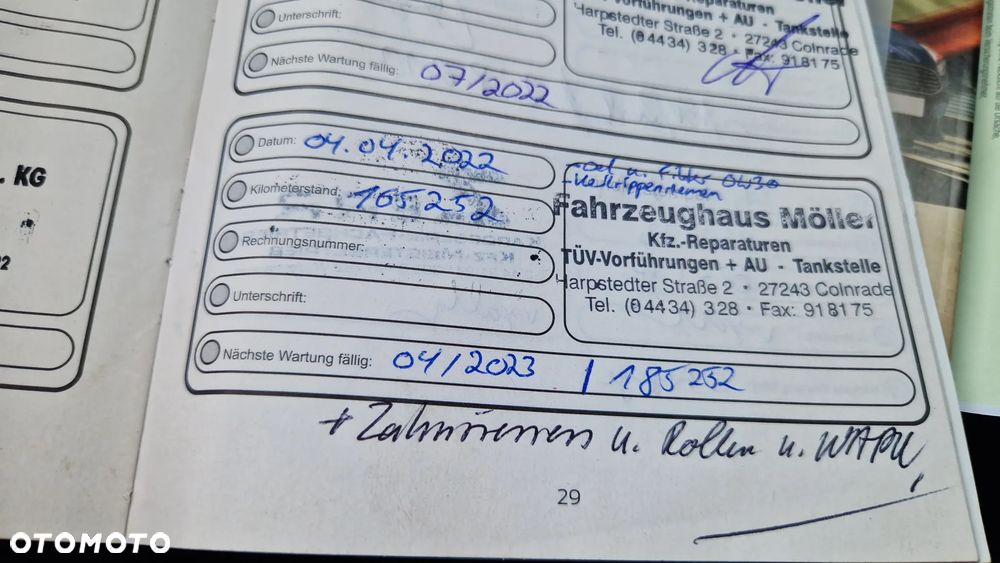 Unterschrift:
Nächste Wartung fällig: 07/2022
-Reparaturen
-Vorführungen + AU - Tankstelle
Harpstedter Straße 2 • 27243 Colnrade
Tel. (04434) 328 • Fax: 918175
. KG
Datum: 04.04.2022
Kilometerstand: 165252
Rechnungsnummer:
Unterschrift:
Nächste Wartung fällig: 04/2023 / 185252
-Oel u. Filter 0W30
-Keilrippenriemen
Fahrzeughaus Möller
Kfz.-Reparaturen
TÜV-Vorführungen + AU - Tankstelle
Harpstedter Straße 2 • 27243 Colnrade
Tel. (04434) 328 • Fax: 918175
+ Zahnriemen u. Rollen u. WAPU
29
OTOMOTO